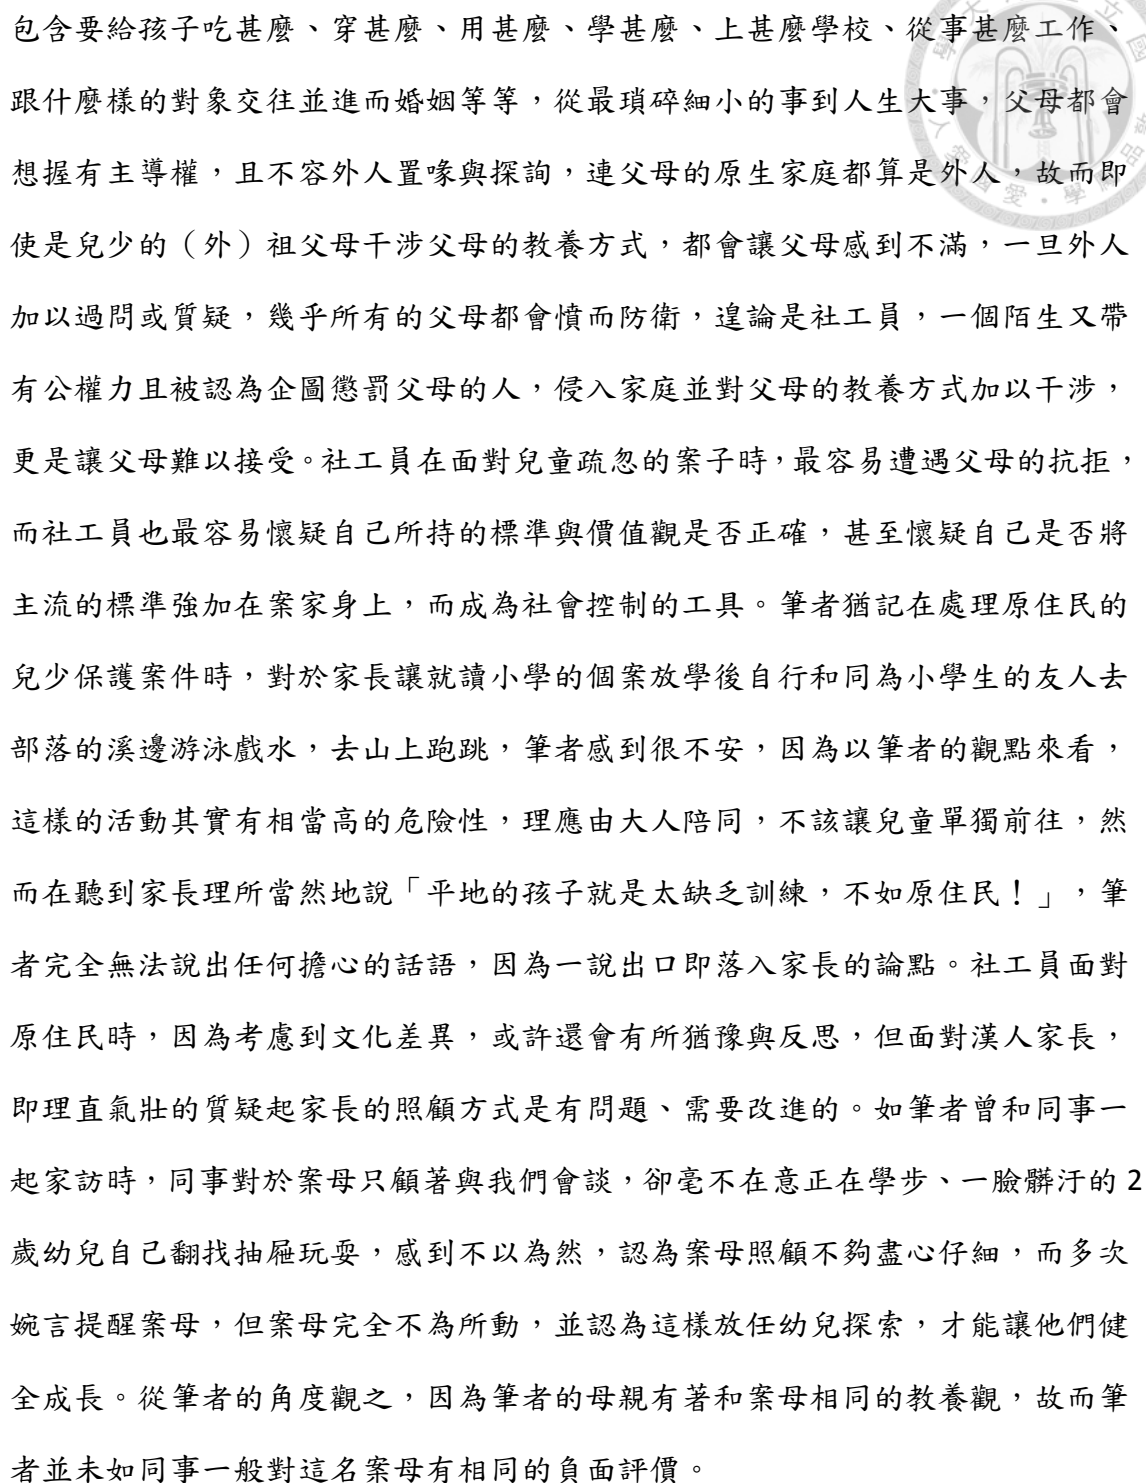 包含要給孩子吃甚麼、穿甚麼、用甚麼、學甚麼、上甚麼學校、從事甚麼工作、
跟什麼樣的對象交往並進而婚姻等等，從最瑣碎細小的事到人生大事，父母都會
想握有主導權，且不容外人置喙與探詢，連父母的原生家庭都算是外人，故而即
使是兒少的（外）祖父母干涉父母的教養方式，都會讓父母感到不滿，一旦外人
加以過問或質疑，幾乎所有的父母都會憤而防衛，遑論是社工員，一個陌生又帶
有公權力且被認為企圖懲罰父母的人，侵入家庭並對父母的教養方式加以干涉，
更是讓父母難以接受。社工員在面對兒童疏忽的案子時，最容易遭遇父母的抗拒，
而社工員也最容易懷疑自己所持的標準與價值觀是否正確，甚至懷疑自己是否將
主流的標準強加在案家身上，而成為社會控制的工具。筆者猶記在處理原住民的
兒少保護案件時，對於家長讓就讀小學的個案放學後自行和同為小學生的友人去
部落的溪邊游泳戲水，去山上跑跳，筆者感到很不安，因為以筆者的觀點來看，
這樣的活動其實有相當高的危險性，理應由大人陪同，不該讓兒童單獨前往，然
而在聽到家長理所當然地說「平地的孩子就是太缺乏訓練，不如原住民！」，筆
者完全無法說出任何擔心的話語，因為一說出口即落入家長的論點。社工員面對
原住民時，因為考慮到文化差異，或許還會有所猶豫與反思，但面對漢人家長，
即理直氣壯的質疑起家長的照顧方式是有問題、需要改進的。如筆者曾和同事一
起家訪時，同事對於案母只顧著與我們會談，卻毫不在意正在學步、一臉髒汙的 2
歲幼兒自己翻找抽屜玩耍，感到不以為然，認為案母照顧不夠盡心仔細，而多次
婉言提醒案母，但案母完全不為所動，並認為這樣放任幼兒探索，才能讓他們健
全成長。從筆者的角度觀之，因為筆者的母親有著和案母相同的教養觀，故而筆
者並未如同事一般對這名案母有相同的負面評價。